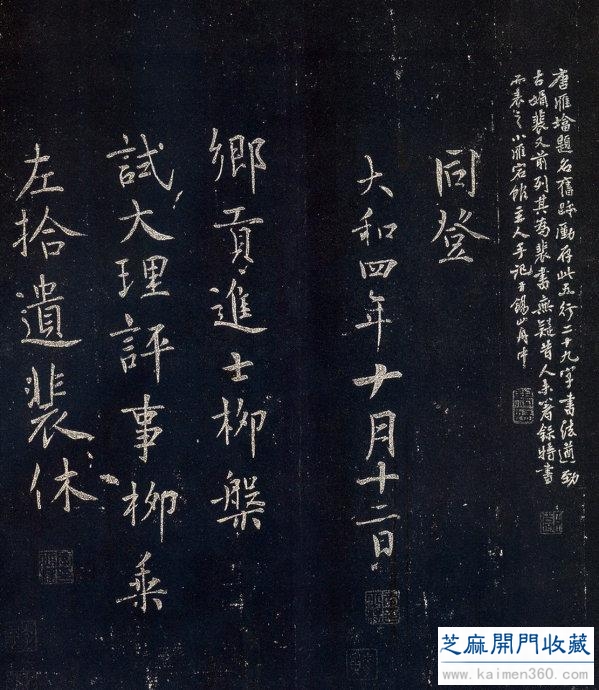 左拾遺裴休
試大理評事柳乘
鄉貢進士柳槃
大和四年十月十二日
同登
唐雁墖題名舊跡廑存此五行二十九字書法遒勁
古媚裴又前列其為裴書無疑昔人未著錄特書
而表之小雁宕館主人手記于錫山舟中
芝麻開門收藏
www.kaimen360.com